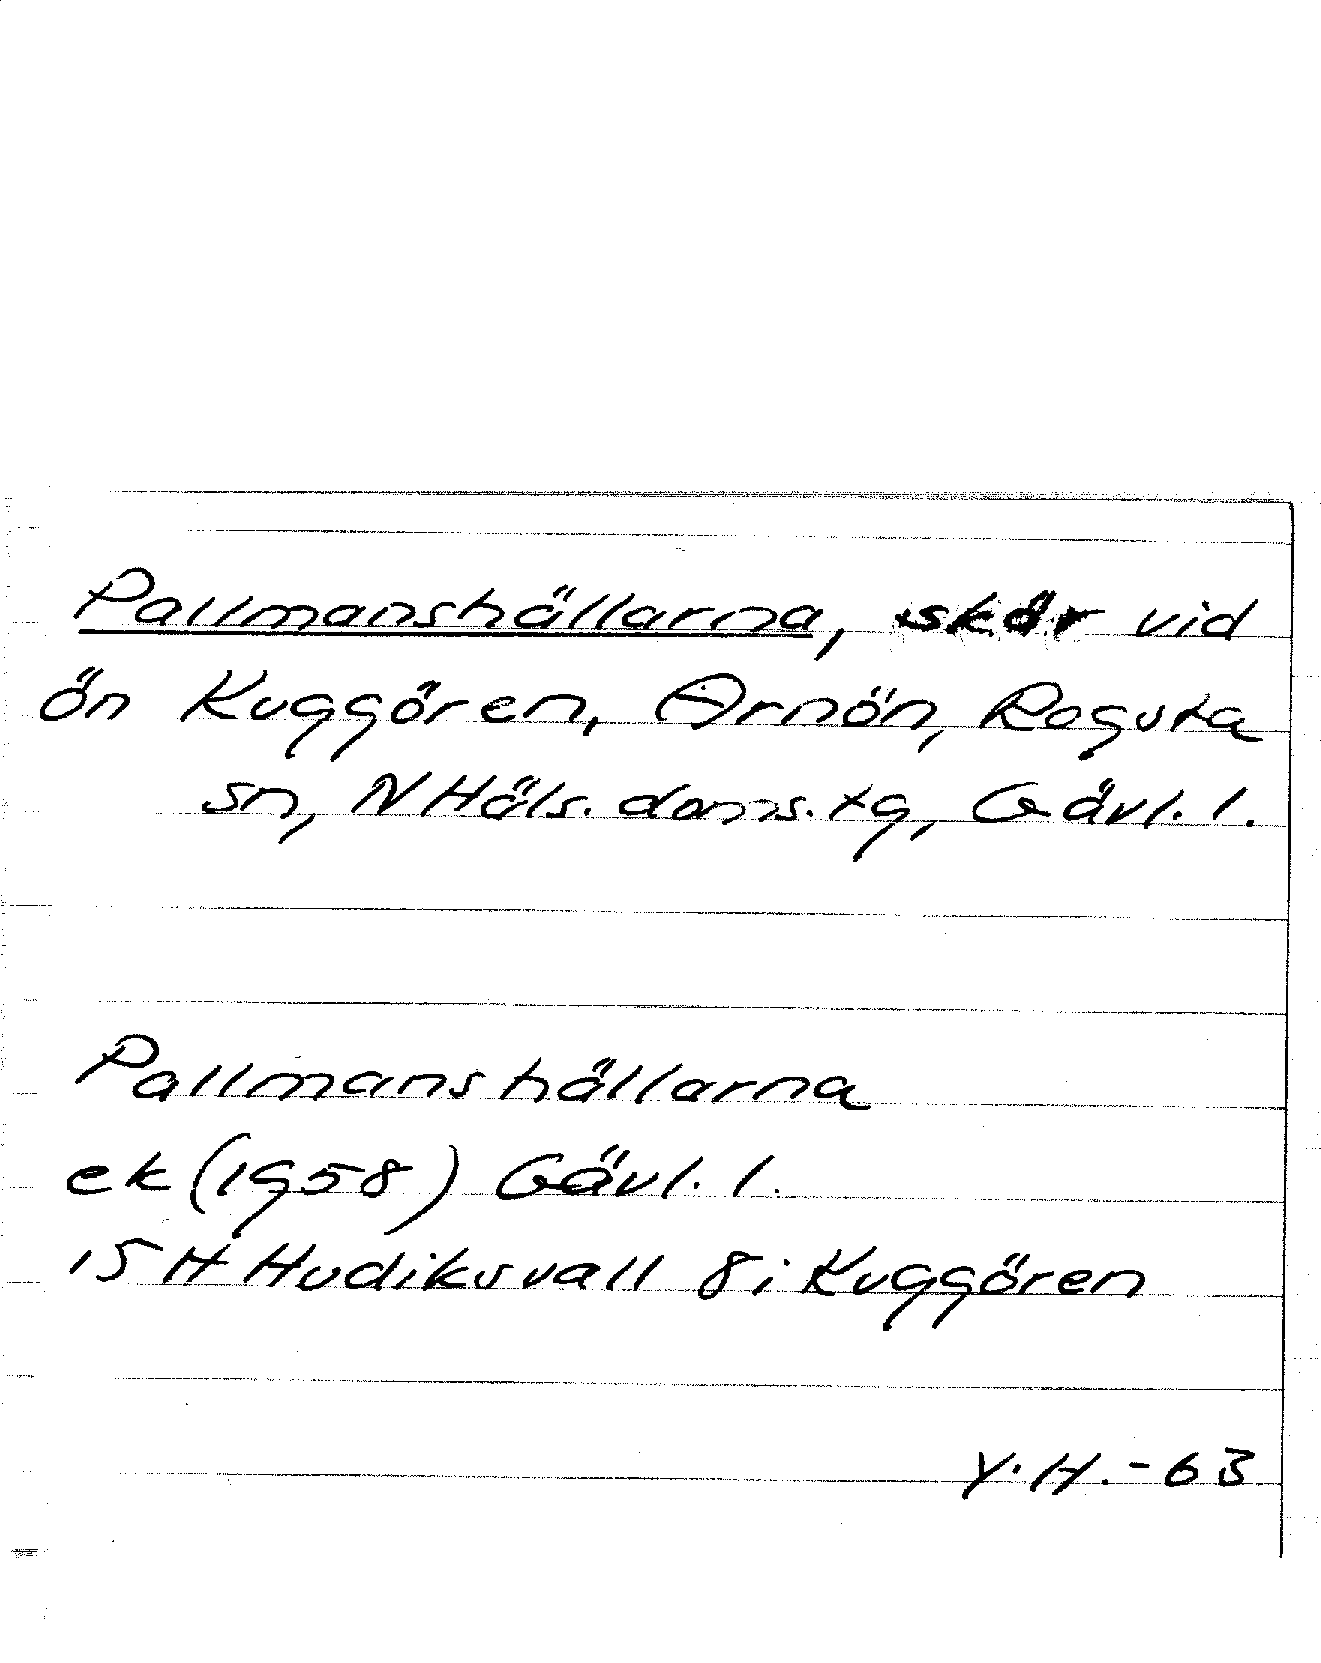 Pallmanshällarna, skär vid
ön Kuggören, Arnön, Rogsta
sn, N Häls. doms. tg, Gävl. l.
Pallmanshällarna
ek (1958) Gävl. l.
15 H Hudiksvall 8i Kuggören
Y.H.-63